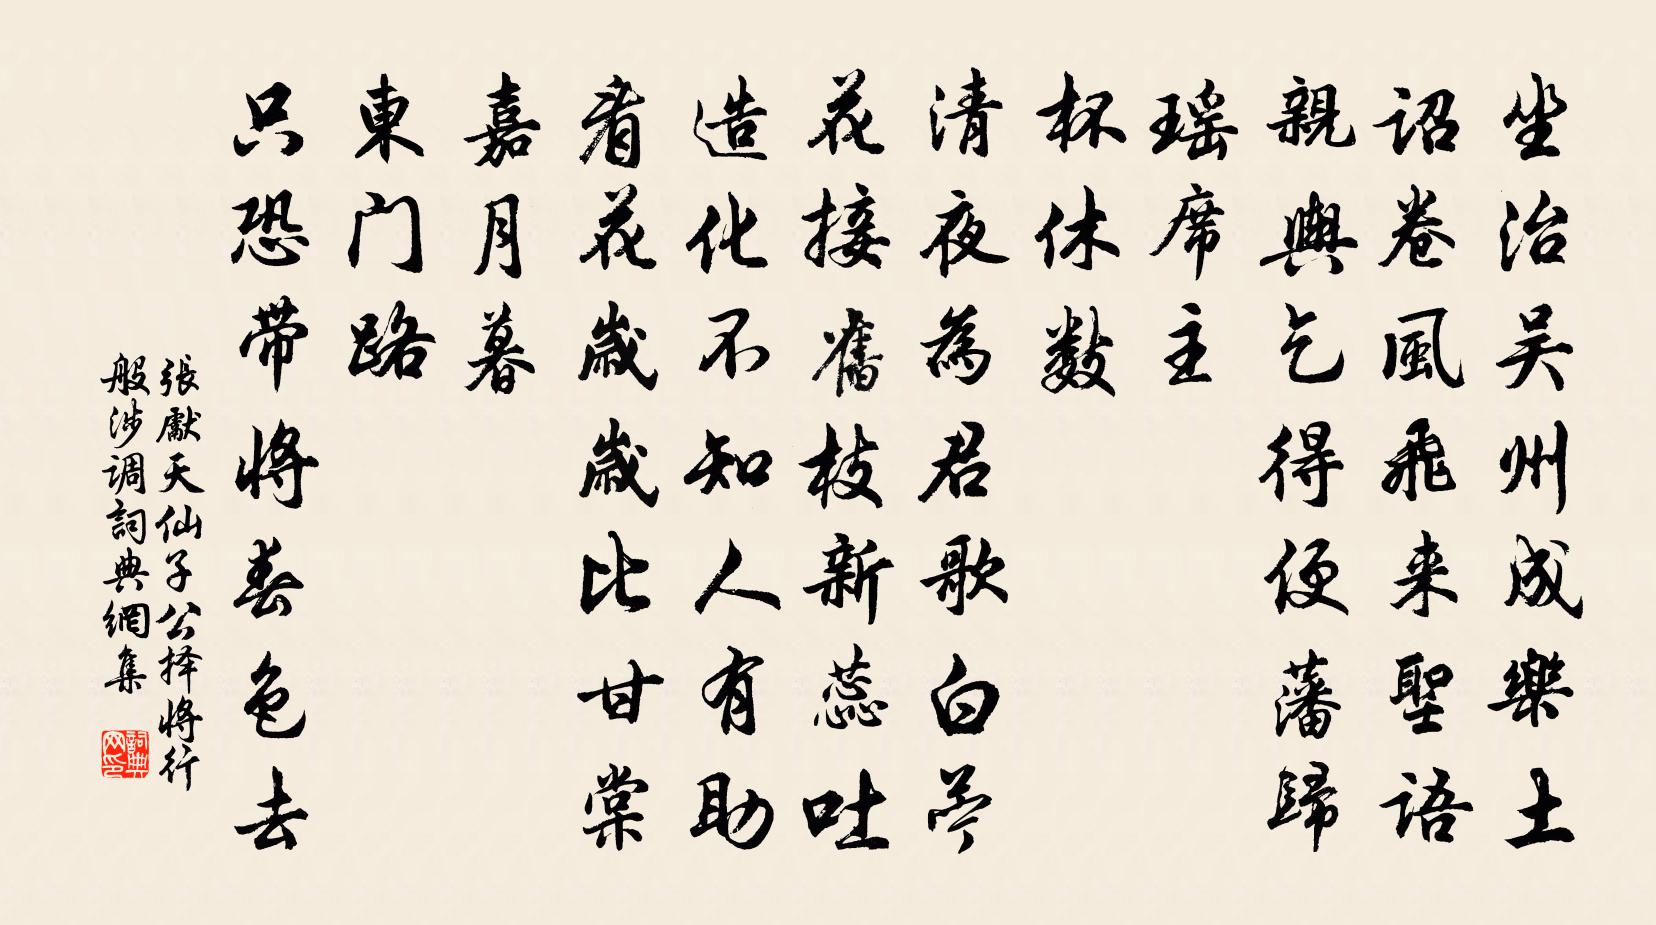 坐治吴州成樂土
詔卷風飛来聖語
親輿乞得便藩歸
瑶席主
杯休數
清夜為君歌白苧
花接舊枝新蕊吐
造化不知人有助
看花歲歲比甘棠
嘉月暮
東门路
只恐带将春色去
張獻天仙子公择将行
般涉调詞典網集
詞典网印